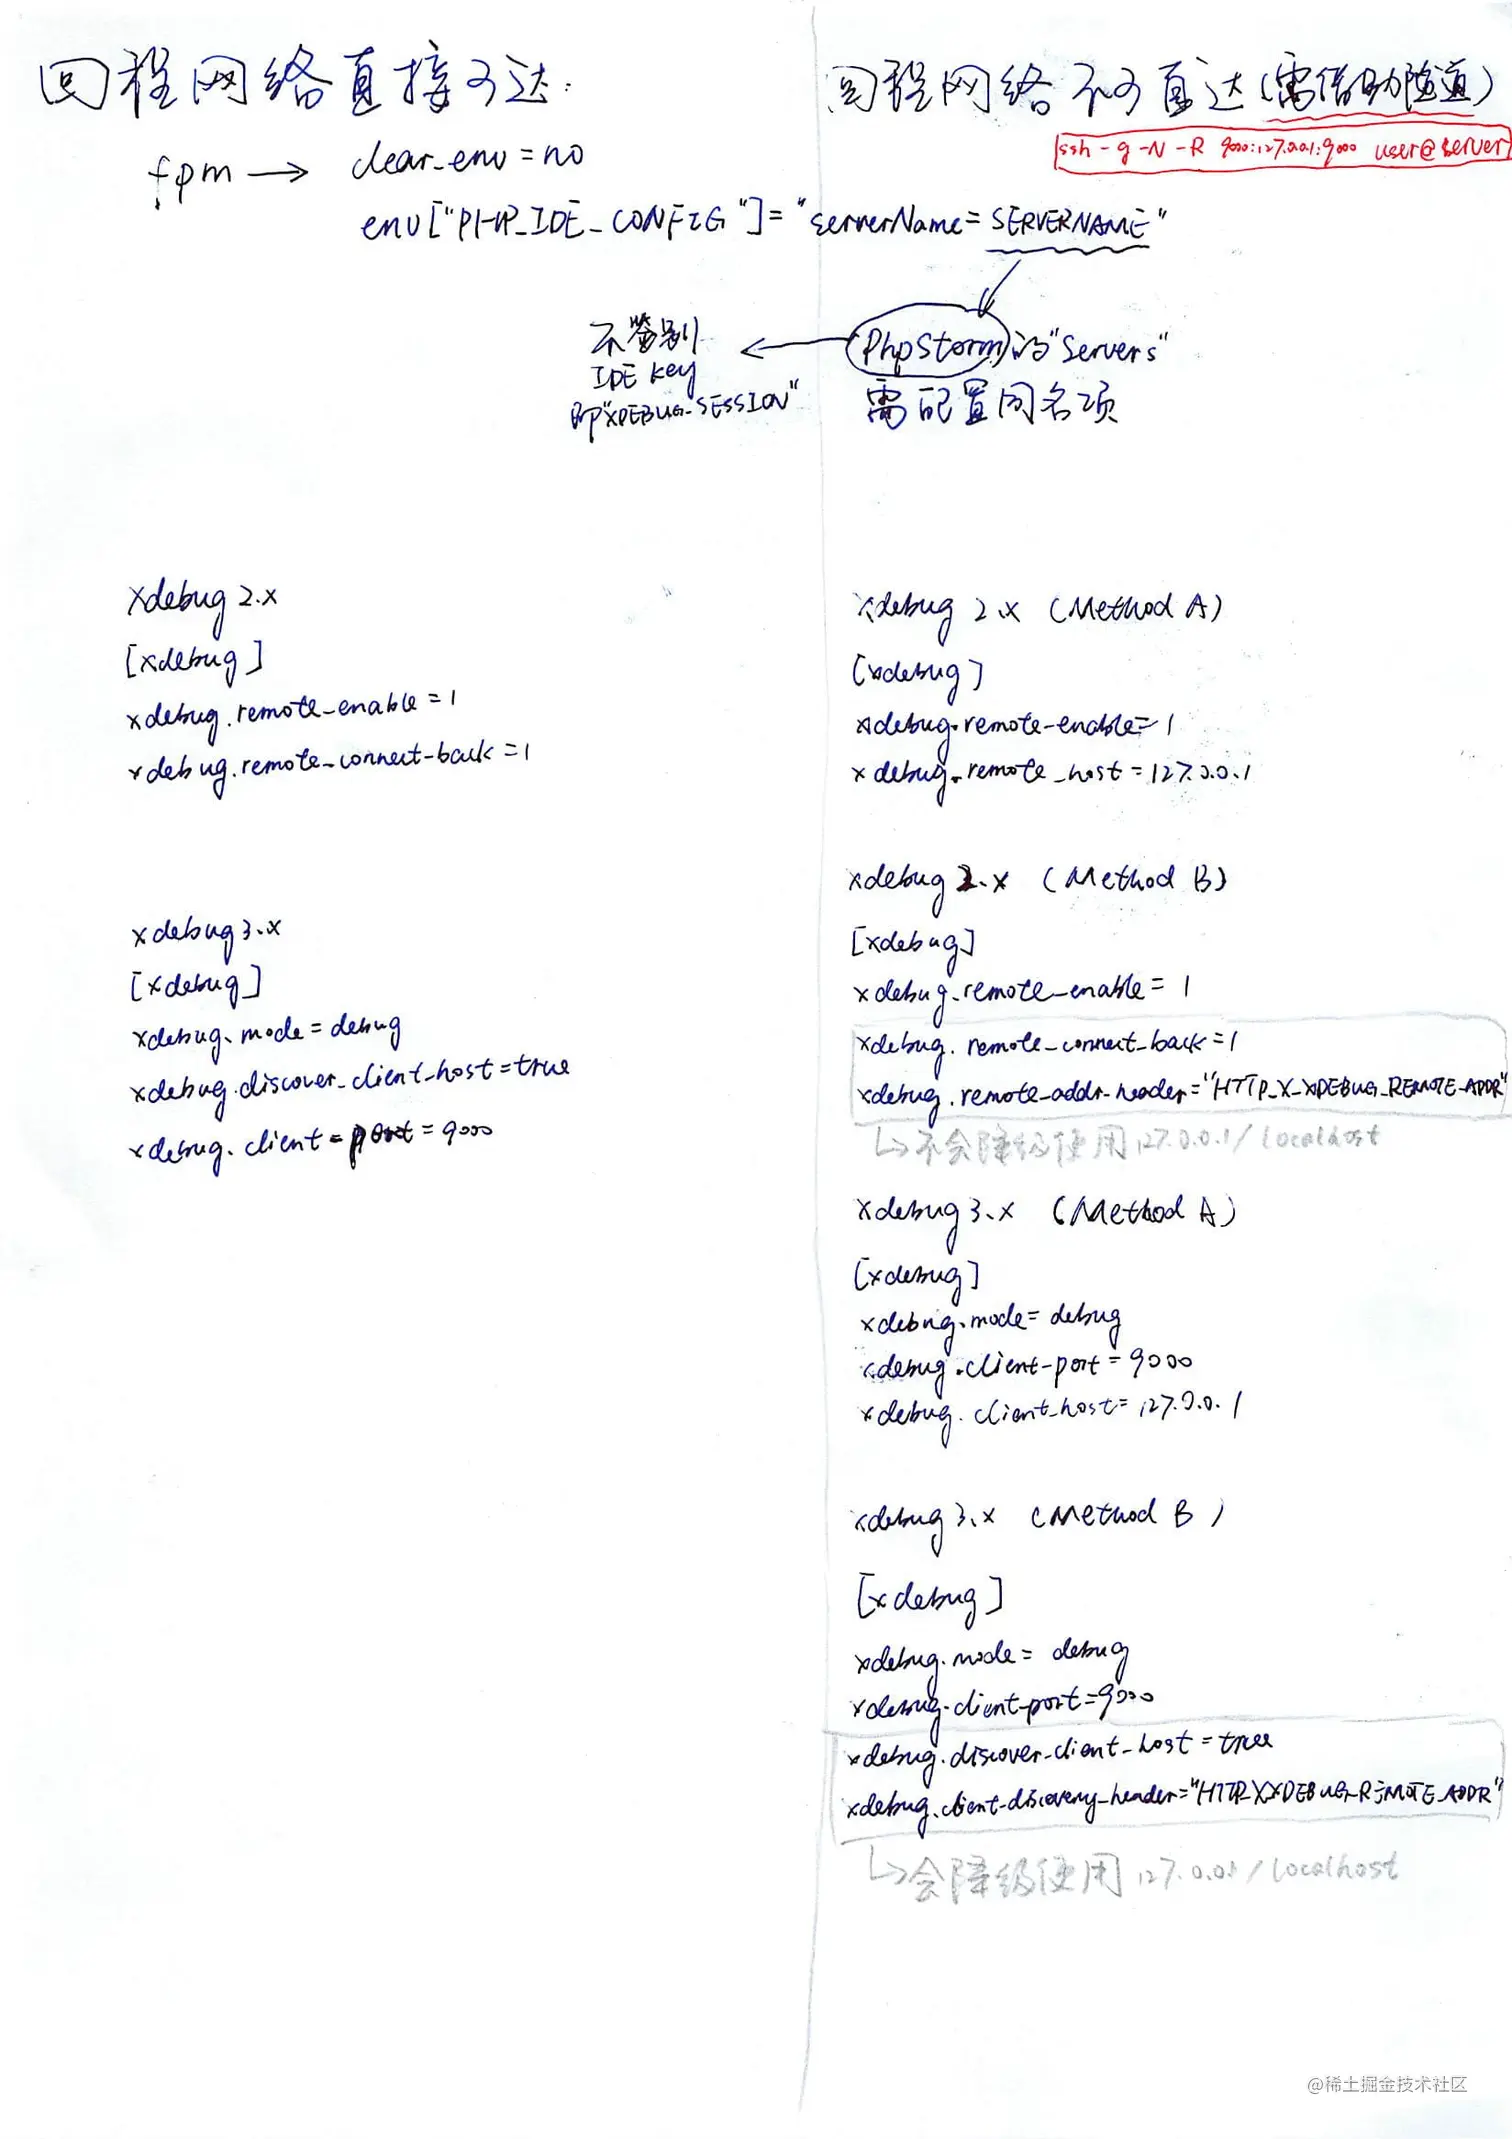 回程网络直接可达:
fpm → clear_env = no
env["PHP_IDE_CONFIG"]="serverName=SERVERNAME"
不鉴别
IDE key
即"XDEBUG_SESSION"
PhpStorm的"Servers"
需配置同名项
xdebug 2.x
[xdebug]
xdebug.remote_enable=1
xdebug.remote_connect-back=1
xdebug 3.x
[xdebug]
xdebug.mode=debug
xdebug.discover_client_host=true
xdebug.client-port=9000
回程网络不可直达(需借助隧道)
ssh -g -N -R 9000:127.0.0.1:9000 user@server
xdebug 2.x (Method A)
[xdebug]
xdebug.remote-enable=1
xdebug.remote_host=127.0.0.1
xdebug 2.x (Method B)
[xdebug]
xdebug.remote_enable=1
xdebug.remote_connect_back=1
xdebug.remote-addr-header="HTTP_X_XDEBUG_REMOTE_ADDR"
↳不会降级使用127.0.0.1/localhost
xdebug 3.x (Method A)
[xdebug]
xdebug.mode=debug
xdebug.client-port=9000
xdebug.client_host=127.0.0.1
xdebug 3.x (Method B)
[xdebug]
xdebug.mode=debug
xdebug.client-port=9000
xdebug.discover_client_host=true
xdebug.client-discovery_header="HTTP_X_XDEBUG_REMOTE_ADDR"
↳会降级使用127.0.0.1/localhost
@稀土掘金技术社区